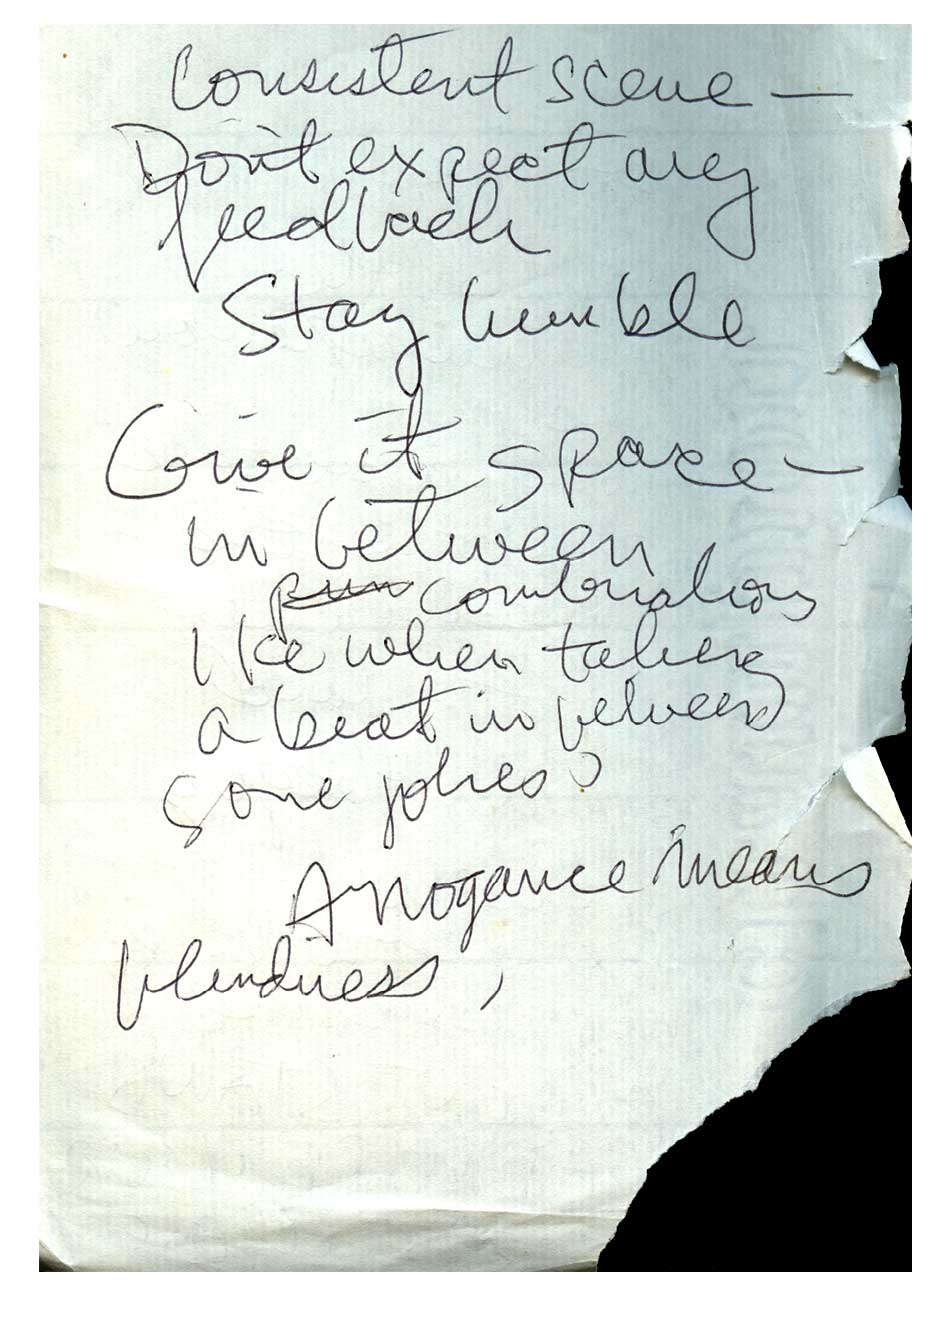 Consistent scene —
Don't expect any
feedback
Stay humble
Give it space —
in between
combinations
like when taking
a beat in between
some jokes?
Arrogance means
blindness,